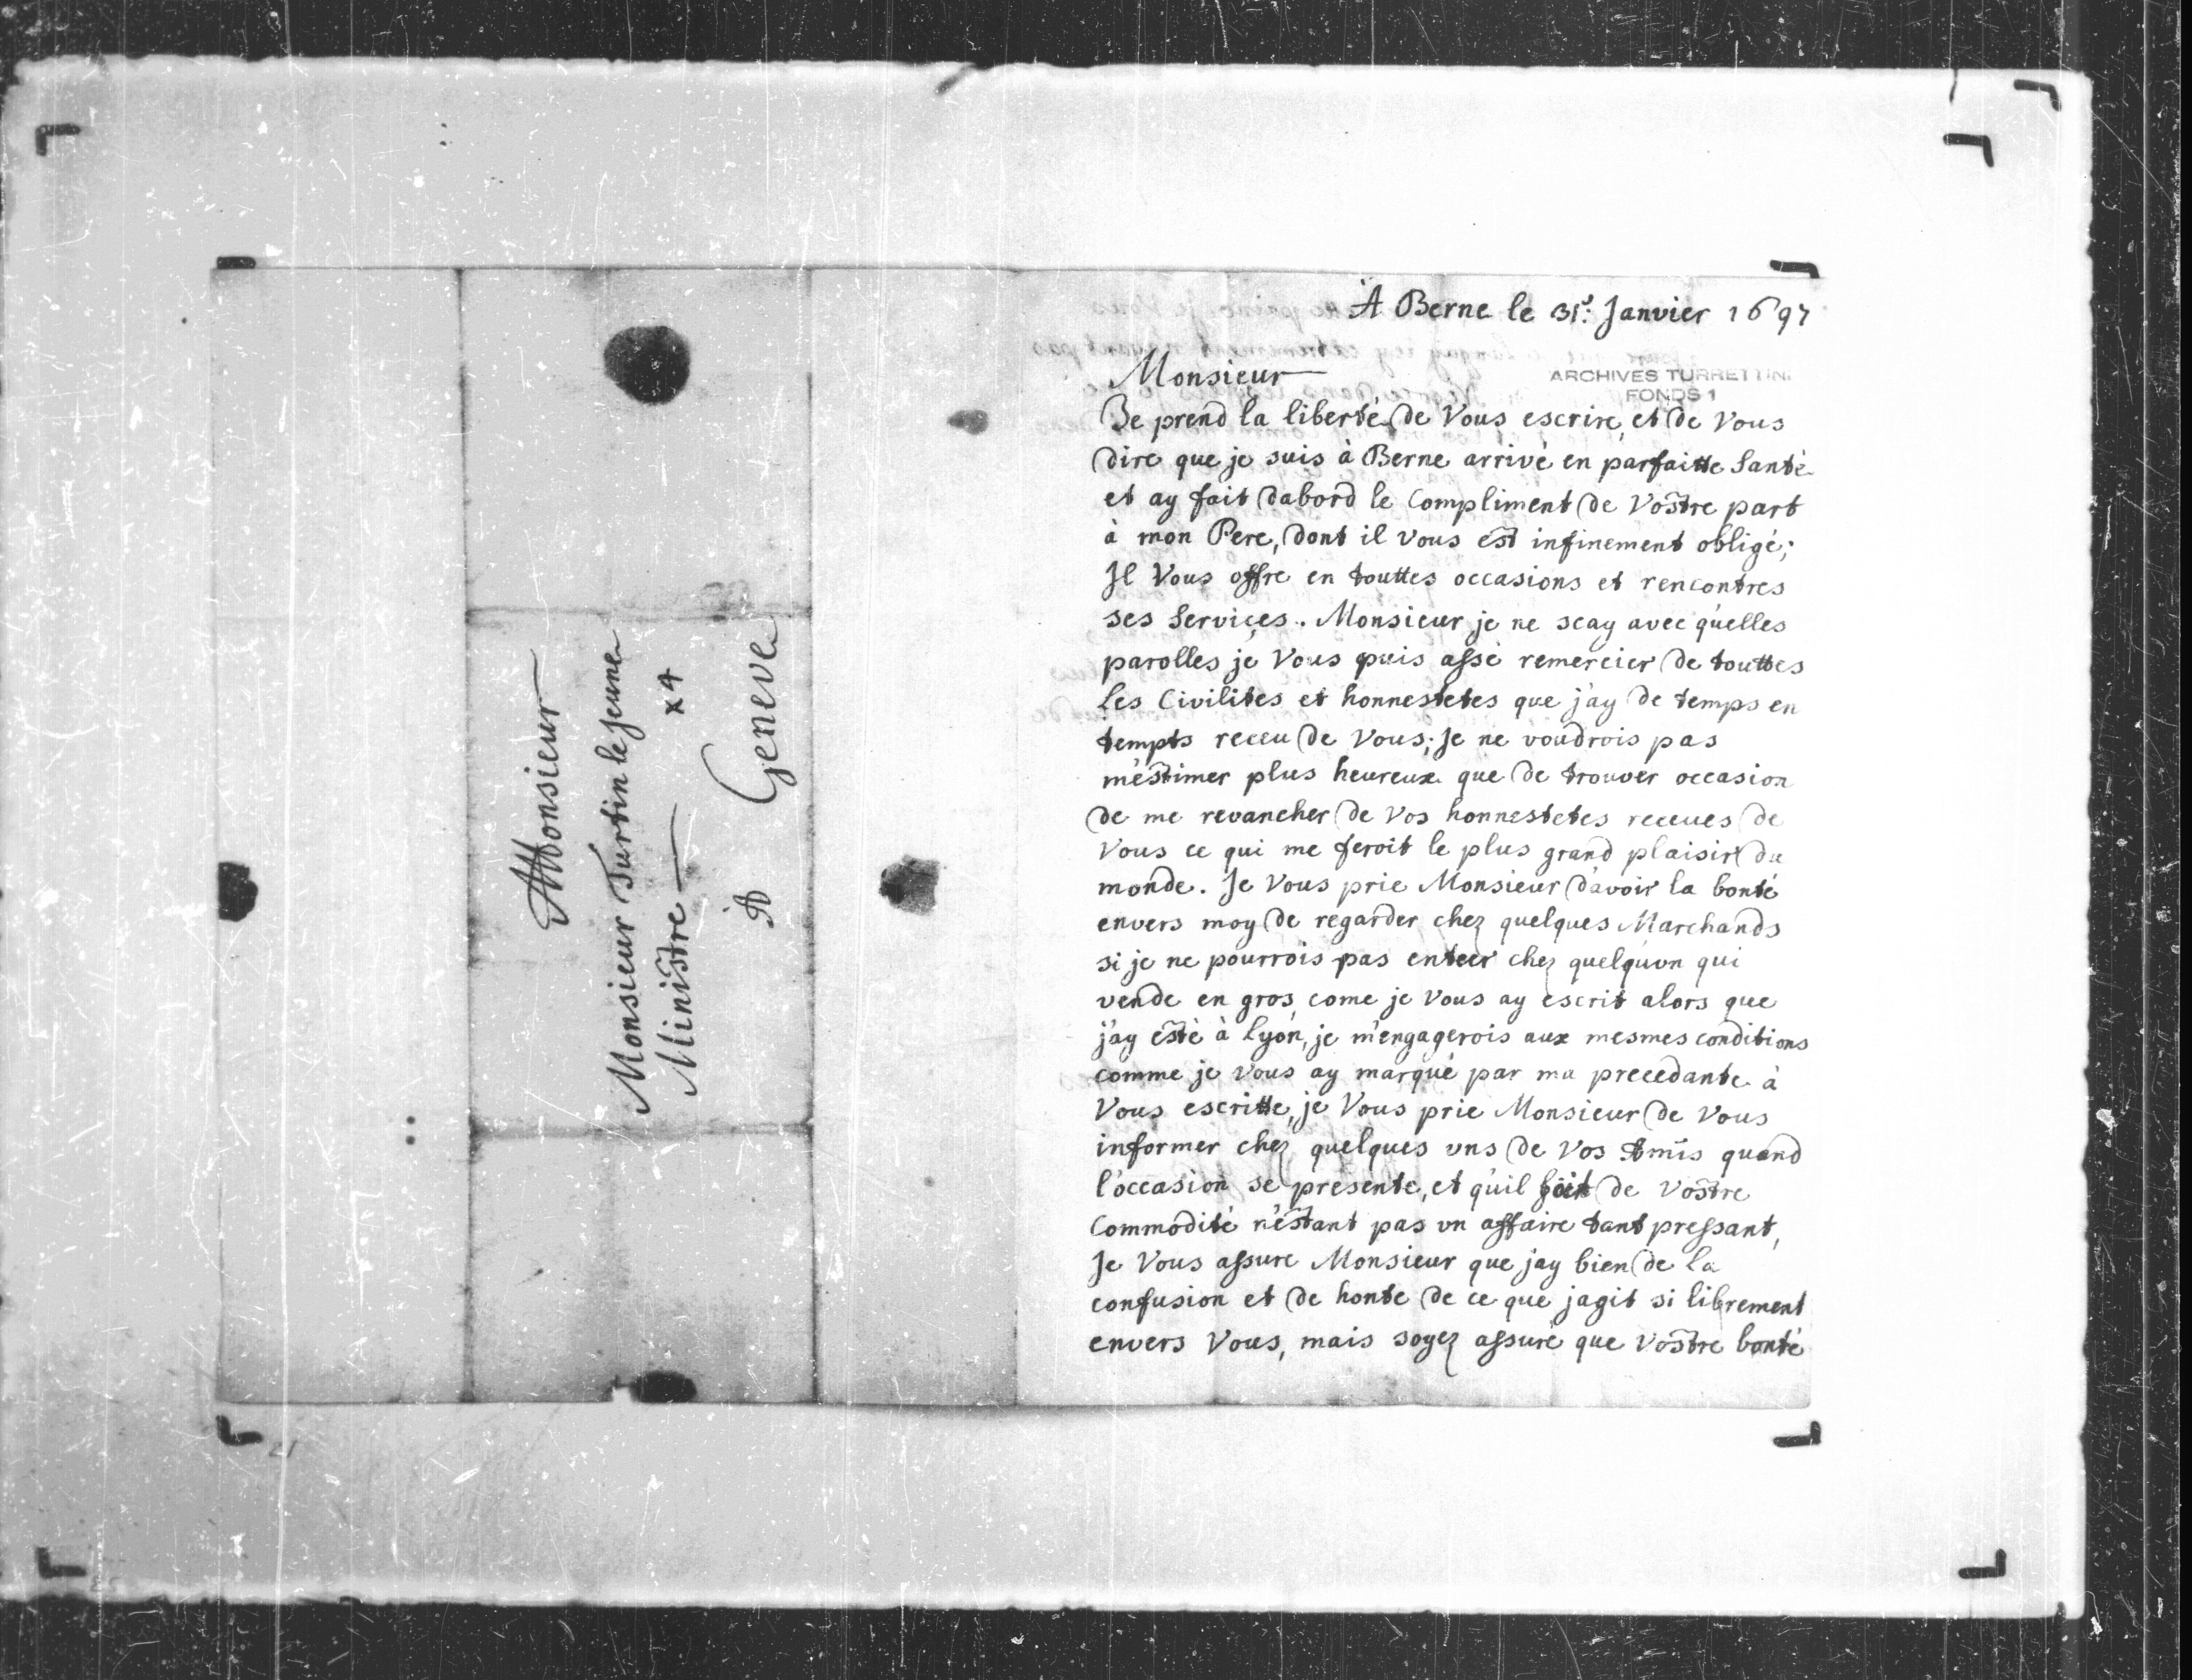 AMonsieur
Monsieur Turtin le Jeune
Ministre x4
A Geneve
A Berne le 31.e Janvier 1697
Monsieur
ARCHIVES TURRETTINI
FONDS 1
Je prend la liberté de Vous escrire, et de Vous
dire que je suis à Berne arrivé en parfaitte Santé
et ay fait dabord le Compliment de Vostre part
à mon Pere, dont il vous est infinement obligé;
Il Vous offre en touttes occasions et rencontres
ses Services. Monsieur je ne scay avec quelles
parolles je Vous puis assé remercier de touttes
les Civilites et honnestetes que j'ay de temps en
tempts receu de Vous; Je ne voudrois pas
m'estimer plus heureux que de trouver occasion
de me revancher de Vos honnestetes receues de
Vous ce qui me feroit le plus grand plaisir du
monde. Je Vous prie Monsieur d'avoir la bonté
envers moy de regarder chez quelques Marchands
si je ne pourrois pas enteer chez quelqu'un qui
vende en gros, come je Vous ay escrit alors que
j'ay esté à Lyon, je m'engagerois aux mesmes conditions
comme je vous ay marqué par ma precedante à
Vous escritte, je Vous prie Monsieur de Vous
informer chez quelques uns de Vos Amis quand
l'occasion se presente, et qu'il soit de Vostre
Commodité n'estant pas un affaire tant pressant,
Je Vous assure Monsieur que jay bien de la
confusion et de honte de ce que jagit si librement
envers Vous, mais soyez assuré que Vostre bonté